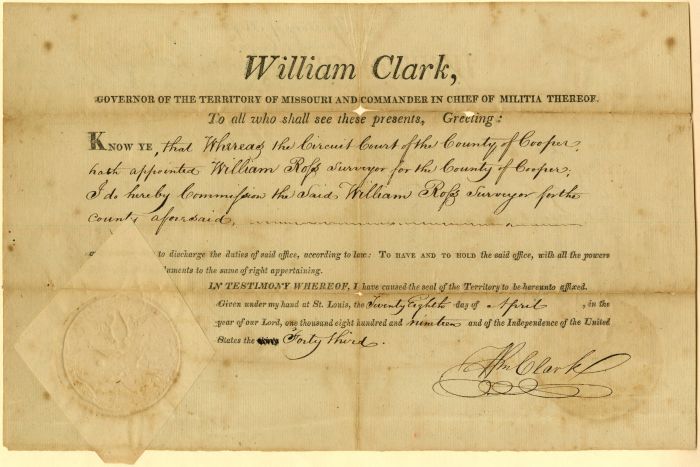 William Clark,
GOVERNOR OF THE TERRITORY OF MISSOURI AND COMMANDER IN CHIEF OF MILITIA THEREOF.
To all who shall see these presents, Greeting:
KNOW YE, that Whereas the Circuit Court of the County of Cooper,
hath appointed William Ross Surveyor for the County of Cooper;
I do hereby Commission the Said William Ross Surveyor for the
County aforesaid,
to discharge the duties of said office, according to law: TO HAVE AND TO HOLD the said office, with all the powers
to the same of right appertaining.
IN TESTIMONY WHEREOF, I have caused the seal of the Territory to be hereunto affixed.
Given under my hand at St. Louis, the Twenty Eighth day of April , in the
year of our Lord, one thousand eight hundred and nineteen and of the Independence of the United
States the Forty third.
Wm Clark